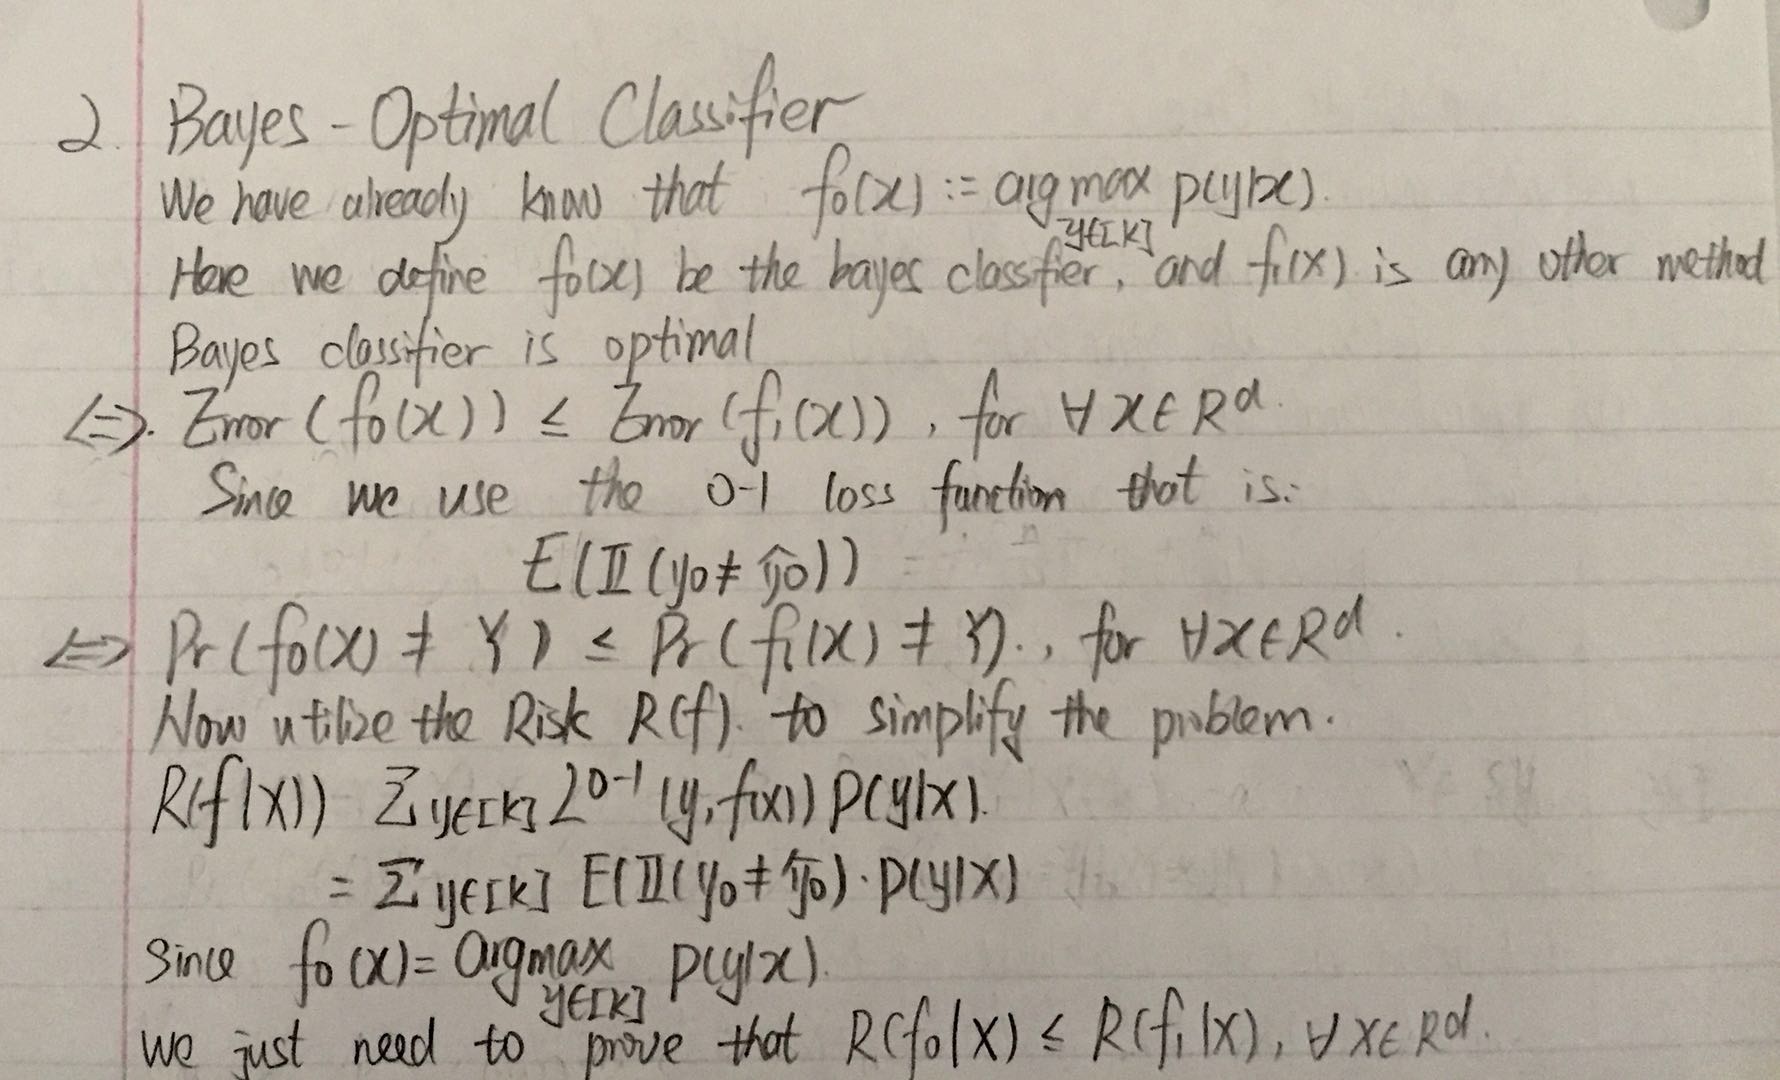 2. Bayes-Optimal Classifier
We have already know that f₀(x) := arg max p(y|x).
y∈[K]
Here we define f₀(x) be the bayes classifier, and f₁(x) is any other method
Bayes classifier is optimal
⇔. Error (f₀(x)) ≤ Error (f₁(x)), for ∀ x∈R^d.
Since we use the 0-1 loss function that is:
E(𝕀(y₀≠ŷ₀))
⇔ Pr(f₀(x) ≠ Y) ≤ Pr(f₁(x) ≠ Y)., for ∀x∈R^d.
Now utilize the Risk R(f). to simplify the problem.
R(f|x)) Σ y∈[K] L^0-1 (y, f(x)) P(y|x).
= Σ y∈[K] E(𝕀(y₀≠ŷ₀)·p(y|x)
since f₀(x) = argmax p(y|x).
y∈[K]
we just need to prove that R(f₀|x) ≤ R(f₁|x), ∀ x∈R^d.